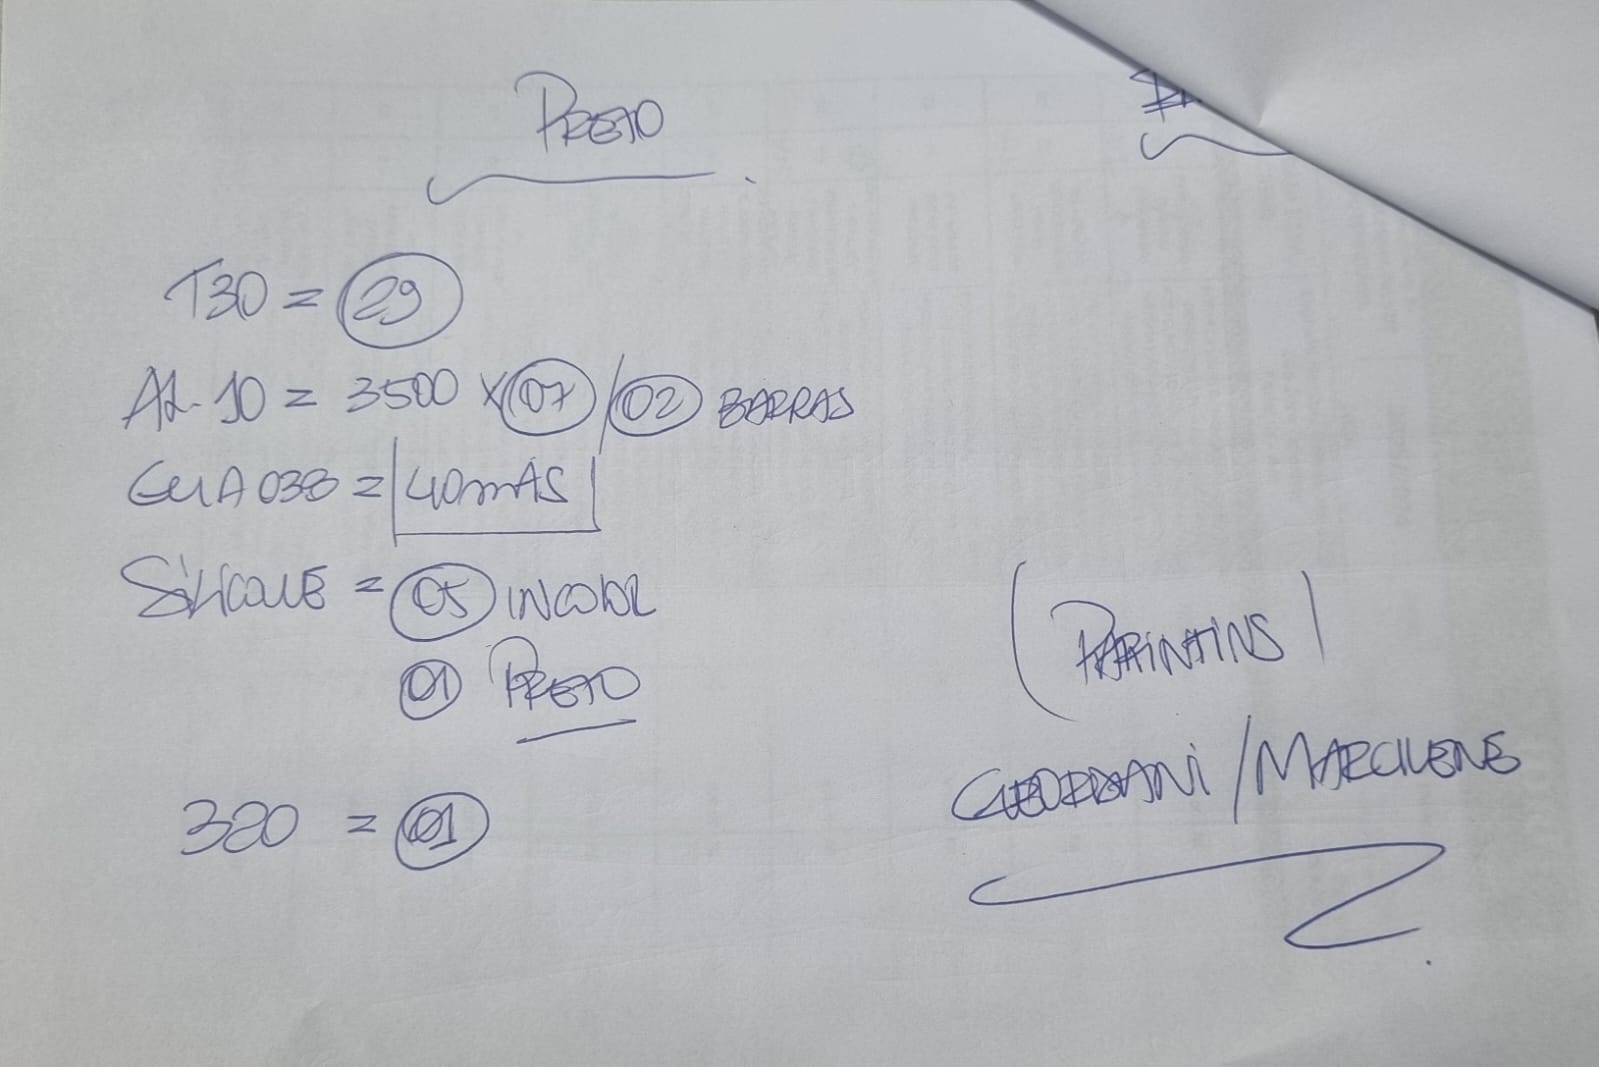 PRETO
T30 = 29
AL-10 = 3500 x 07 / 02 BARRAS
GUA 038 = 40mAS
SiLICONE = 05 INCOLOR
01 PRETO
320 = 01
(PARiNTiNS)
GEORDANi / MARCILENE